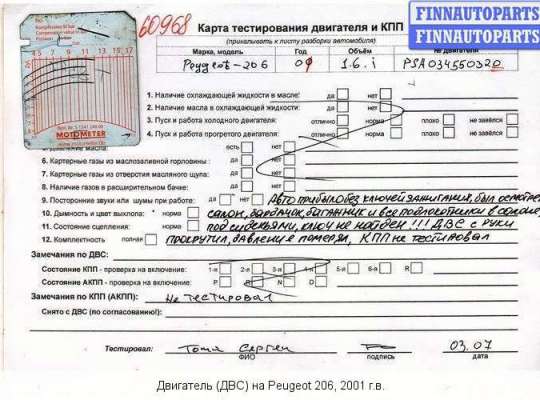 60968
Карта тестирования двигателя и КПП
FINNAUTOPARTS
FINNAUTOPARTS
(прикалывать к листу разборки автомобиля)
Марка, модель Год Объём № двигателя
Peugeot-206 01 1.6.i PSA034550320
4.5 5 7 9 11 13 15 17
MOTOMETER
1. Наличие охлаждающей жидкости в масле: да нет
2. Наличие масла в охлаждающей жидкости: да нет
3. Пуск и работа холодного двигателя: отлично норма плохо не завёлся
4. Пуск и работа прогретого двигателя: отлично норма плохо не завёлся
масла: есть нет
6. Картерные газы из маслозаливной горловины: да нет
7. Картерные газы из отверстия масляного щупа: да нет
8. Наличие газов в расширительном бачке: да нет
9. Посторонние звуки или шумы при работе: да нет Авто прибыло без ключей зажигания, был осмотрен
10. Дымность и цвет выхлопа: норма салон, бардачок, багажник и все подлокотники в салоне,
11. Состояние сцепления: норма под сиденьями, ключ не найден!!! ДВС с руки
12. Комплектность полная прокрутил, давление померял, КПП не тестировал
Замечания по ДВС:
Состояние КПП - проверка на включение: 1-я 2-я 3-я 4-я 5-я
Состояние АКПП - проверка на включение: P R N D
Замечания по КПП (АКПП): Не тестировал
Снято с ДВС (по согласованию!):
Тестировал: Сергей 03.07
ФИО подпись дата
Двигатель (ДВС) на Peugeot 206, 2001 г.в.